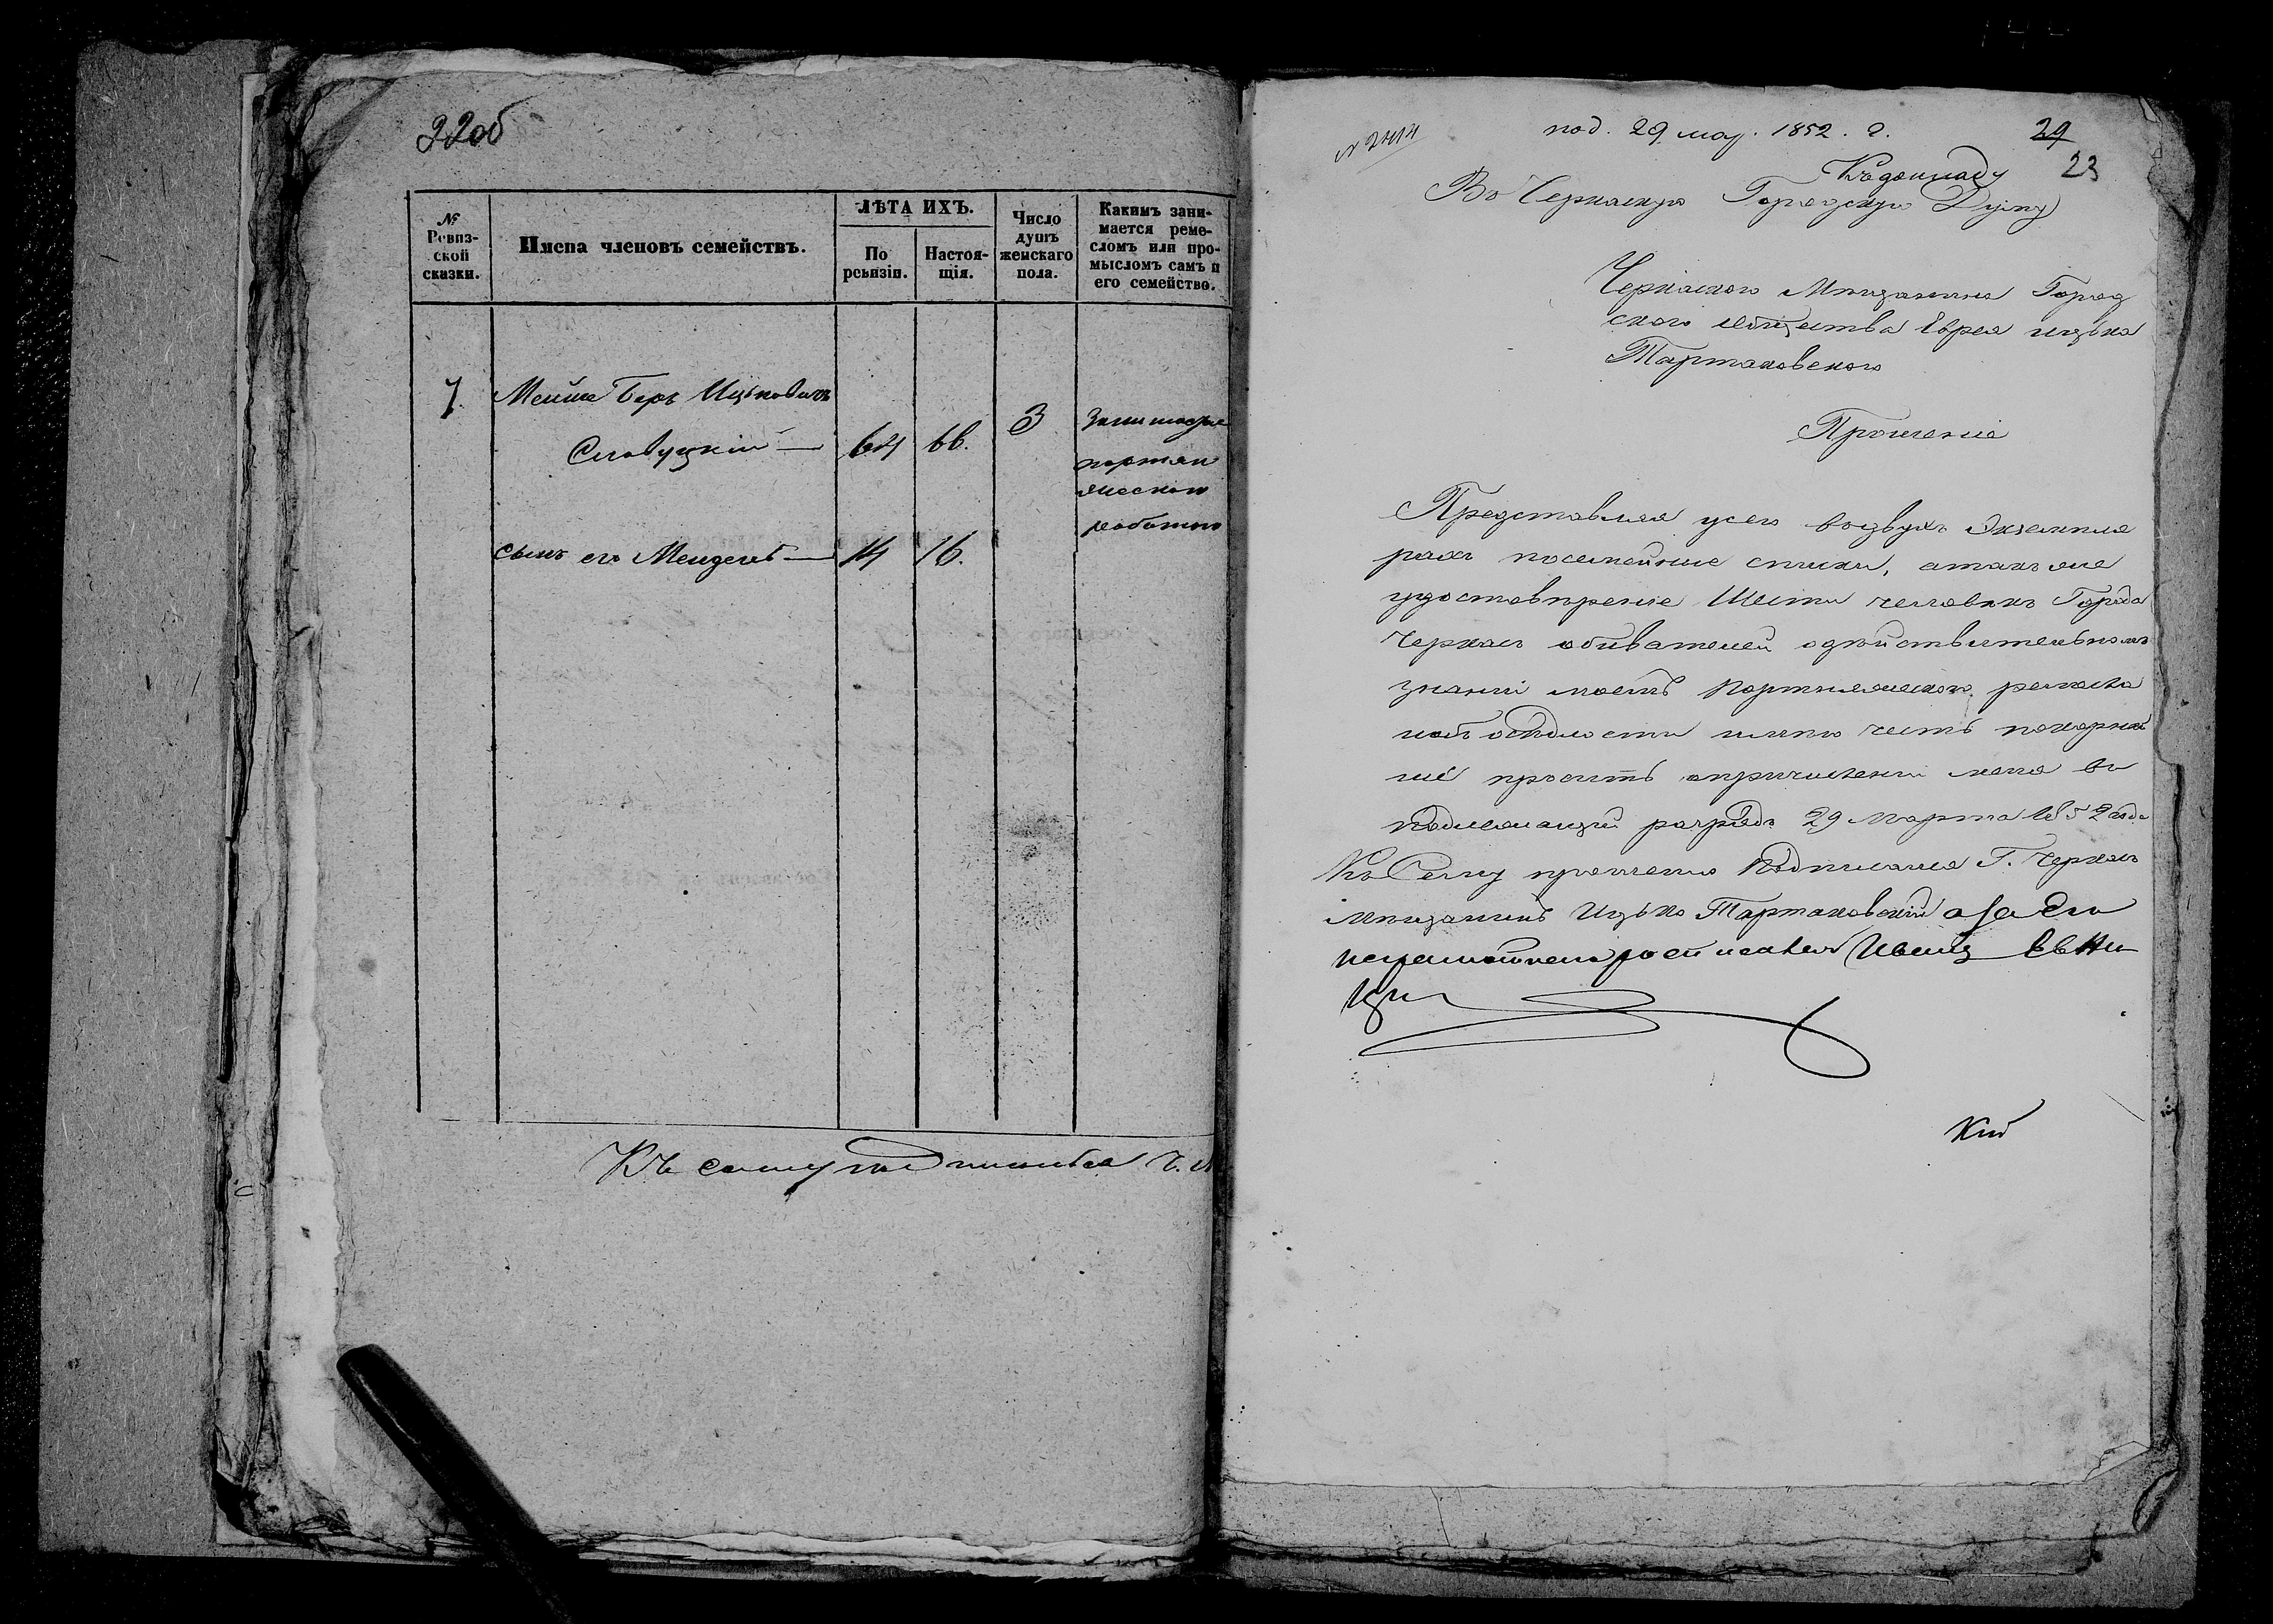 22об
№ Ревиз-ской сказки.
Имена членовъ семействъ.
ЛѢТА ИХЪ.
По ревизіи.
Настоя-щія.
Число душъ женскаго пола.
Какимъ зани-мается реме-сломъ или про-мысломъ самъ и его семейство.
7 Мейше Беръ Ицковичъ
Славуцкій — 64 66. 3 Занимается
портня
жескою
работою
сынъ его Мендель — 14 16.
Къ сему подписался
под. 29 мар. 1852. г.
29
23
Къ докладу
Въ Черкаскую Городскую Думу
Черкаского Мещанина Город
ского общества Еврея Ицька
Тартаковского
Прошение
Представляя у сего въ двухъ Экземпля
рахъ посемейные списки, а такъ же
удостоверение Шести человекъ Города
Черкасъ обивателей о действительномъ
знании моемъ Портняжеского ремесла
и об оседлости имею честь покорней
ше просить о причислении меня въ
подлежащий розрядъ 29 Марта 1852 года
Къ Сему прошению Подписался Г. Черкасъ
мещанинъ Ицько Тартаковский а за его
неграмотного росписался